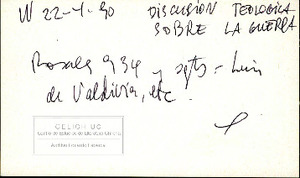 W 22-4-90 DISCUSION TEOLOGICA
SOBRE LA GUERRA
Rosales 934 y sgts - Luis
de Valdivia, etc.
CELICH UC